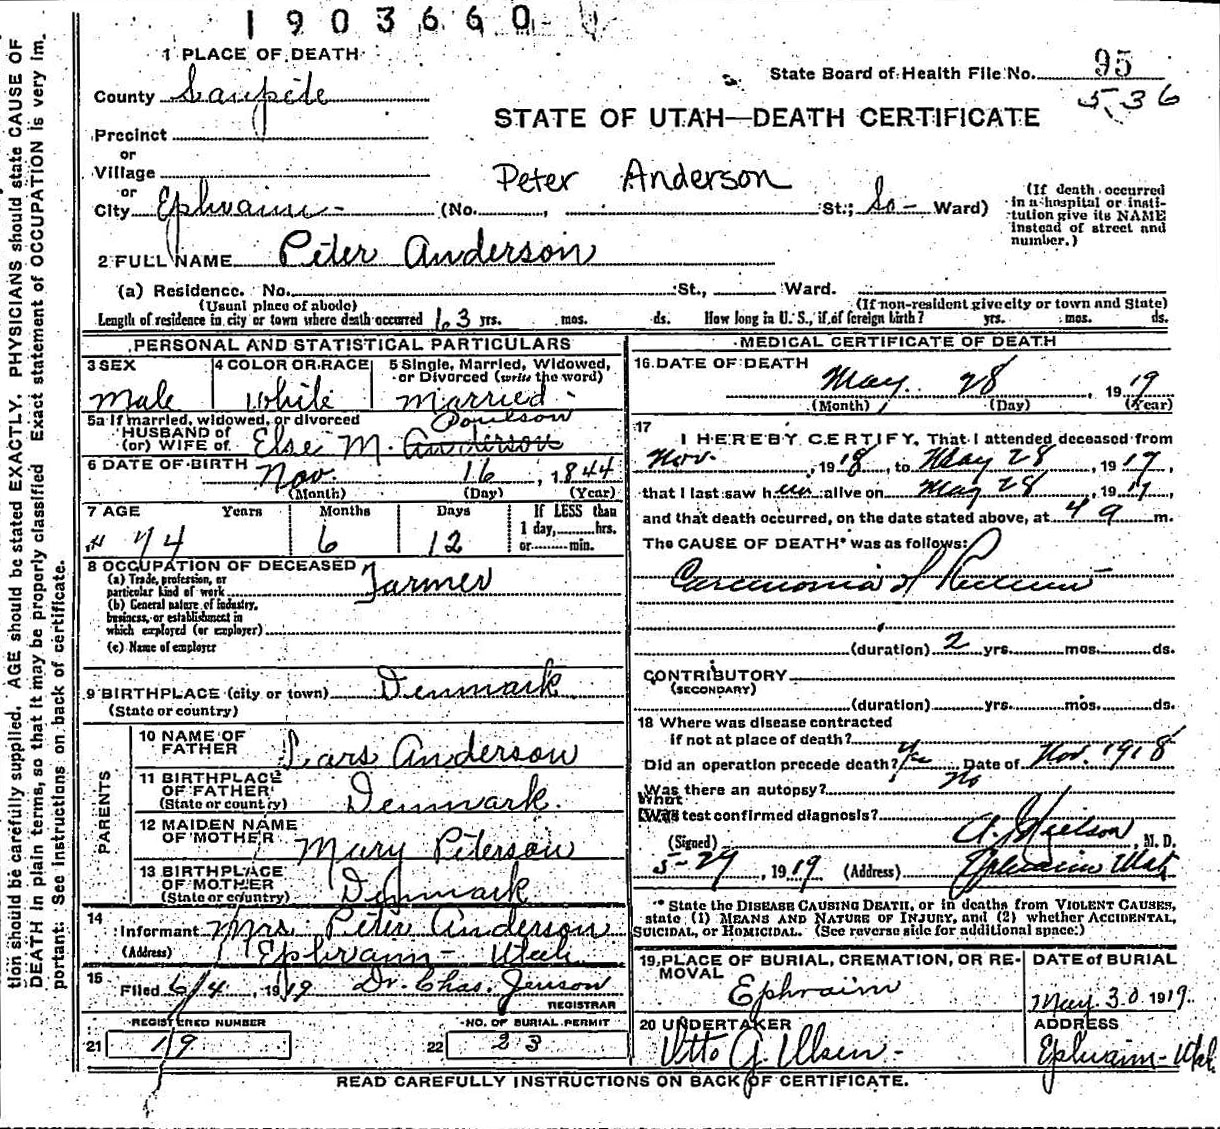 1903660
1 PLACE OF DEATH
State Board of Health File No. 95
County Sanpete
536
STATE OF UTAH—DEATH CERTIFICATE
Precinct
or
Village
Peter Anderson
or
City Ephraim (No. , St.; So- Ward)
(If death occurred in a hospital or insti-
tution give its NAME
instead of street and
number.)
2 FULL NAME Peter Anderson
(a) Residence. No. St., Ward.
(Usual place of abode) (If non-resident give city or town and State)
Length of residence in city or town where death occurred 63 yrs. mos. ds. How long in U. S., if of foreign birth? yrs. mos. ds.
PERSONAL AND STATISTICAL PARTICULARS
3 SEX
Male
4 COLOR OR RACE
White
5 Single, Married, Widowed,
or Divorced (write the word)
Married
5a If married, widowed, or divorced
HUSBAND of
(or) WIFE of Else M. Anderson Poulson
6 DATE OF BIRTH Nov. 16, 1844
(Month) (Day) (Year)
7 AGE Years Months Days
74 6 12
If LESS than
1 day, hrs.
or min.
8 OCCUPATION OF DECEASED
(a) Trade, profession, or
particular kind of work Farmer
(b) General nature of industry,
business, or establishment in
which employed (or employer)
(c) Name of employer
9 BIRTHPLACE (city or town) Denmark
(State or country)
PARENTS
10 NAME OF
FATHER Lars Anderson
11 BIRTHPLACE
OF FATHER
(State or country) Denmark.
12 MAIDEN NAME
OF MOTHER Mary Peterson
13 BIRTHPLACE
OF MOTHER
(State or country) Denmark
14
Informant Mrs Peter Anderson
(Address) Ephraim - Utah
15
Filed 6/4, 1919 Dr. Chas. Jenson
REGISTRAR
REGISTERED NUMBER
21 19
NO. OF BURIAL PERMIT
22 23
MEDICAL CERTIFICATE OF DEATH
16 DATE OF DEATH
May 28, 1919
(Month) (Day) (Year)
17
I HEREBY CERTIFY, That I attended deceased from
Nov. , 1918, to May 28, 1919,
that I last saw him alive on May 28, 1919,
and that death occurred, on the date stated above, at 4 m.
The CAUSE OF DEATH* was as follows:
Carcinoma of Rectum
(duration) 2 yrs. mos. ds.
CONTRIBUTORY
(SECONDARY)
(duration) yrs. mos. ds.
18 Where was disease contracted
if not at place of death?
Did an operation precede death? Yes Date of Nov. 1918
Was there an autopsy? No
What
test confirmed diagnosis?
(Signed) A. Nielson, M. D.
5-29, 1919 (Address) Ephraim Utah
* State the DISEASE CAUSING DEATH, or in deaths from VIOLENT CAUSES,
state (1) MEANS AND NATURE OF INJURY, and (2) whether ACCIDENTAL,
SUICIDAL, OR HOMICIDAL. (See reverse side for additional space.)
19 PLACE OF BURIAL, CREMATION, OR RE-
MOVAL
Ephraim
DATE of BURIAL
May 30 1919
20 UNDERTAKER
Otto G. Olsen -
ADDRESS
Ephraim - Utah.
READ CAREFULLY INSTRUCTIONS ON BACK OF CERTIFICATE.
tion should be carefully supplied. AGE should be stated EXACTLY. PHYSICIANS should state CAUSE OF
DEATH in plain terms, so that it may be properly classified. Exact statement of OCCUPATION is very im-
portant: See instructions on back of certificate.